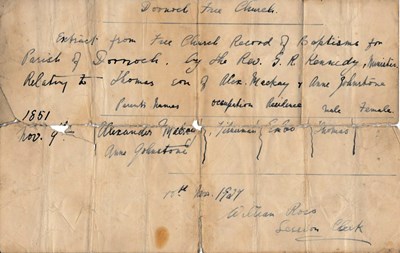 Dornoch Free Church.
Extract from Free Church Record of Baptisms for
Parish of Dornoch. by the Rev. G. R. Kennedy, Minister
Relating to Thomas son of Alex. Mackay & Anne Johnstone
Parents Names occupation Residence male Female
1861
Nov. 9th Alexander Mackay Fisherman Embo Thomas
Anne Johnstone
10th Nov. 1927
William Ross
Session Clerk